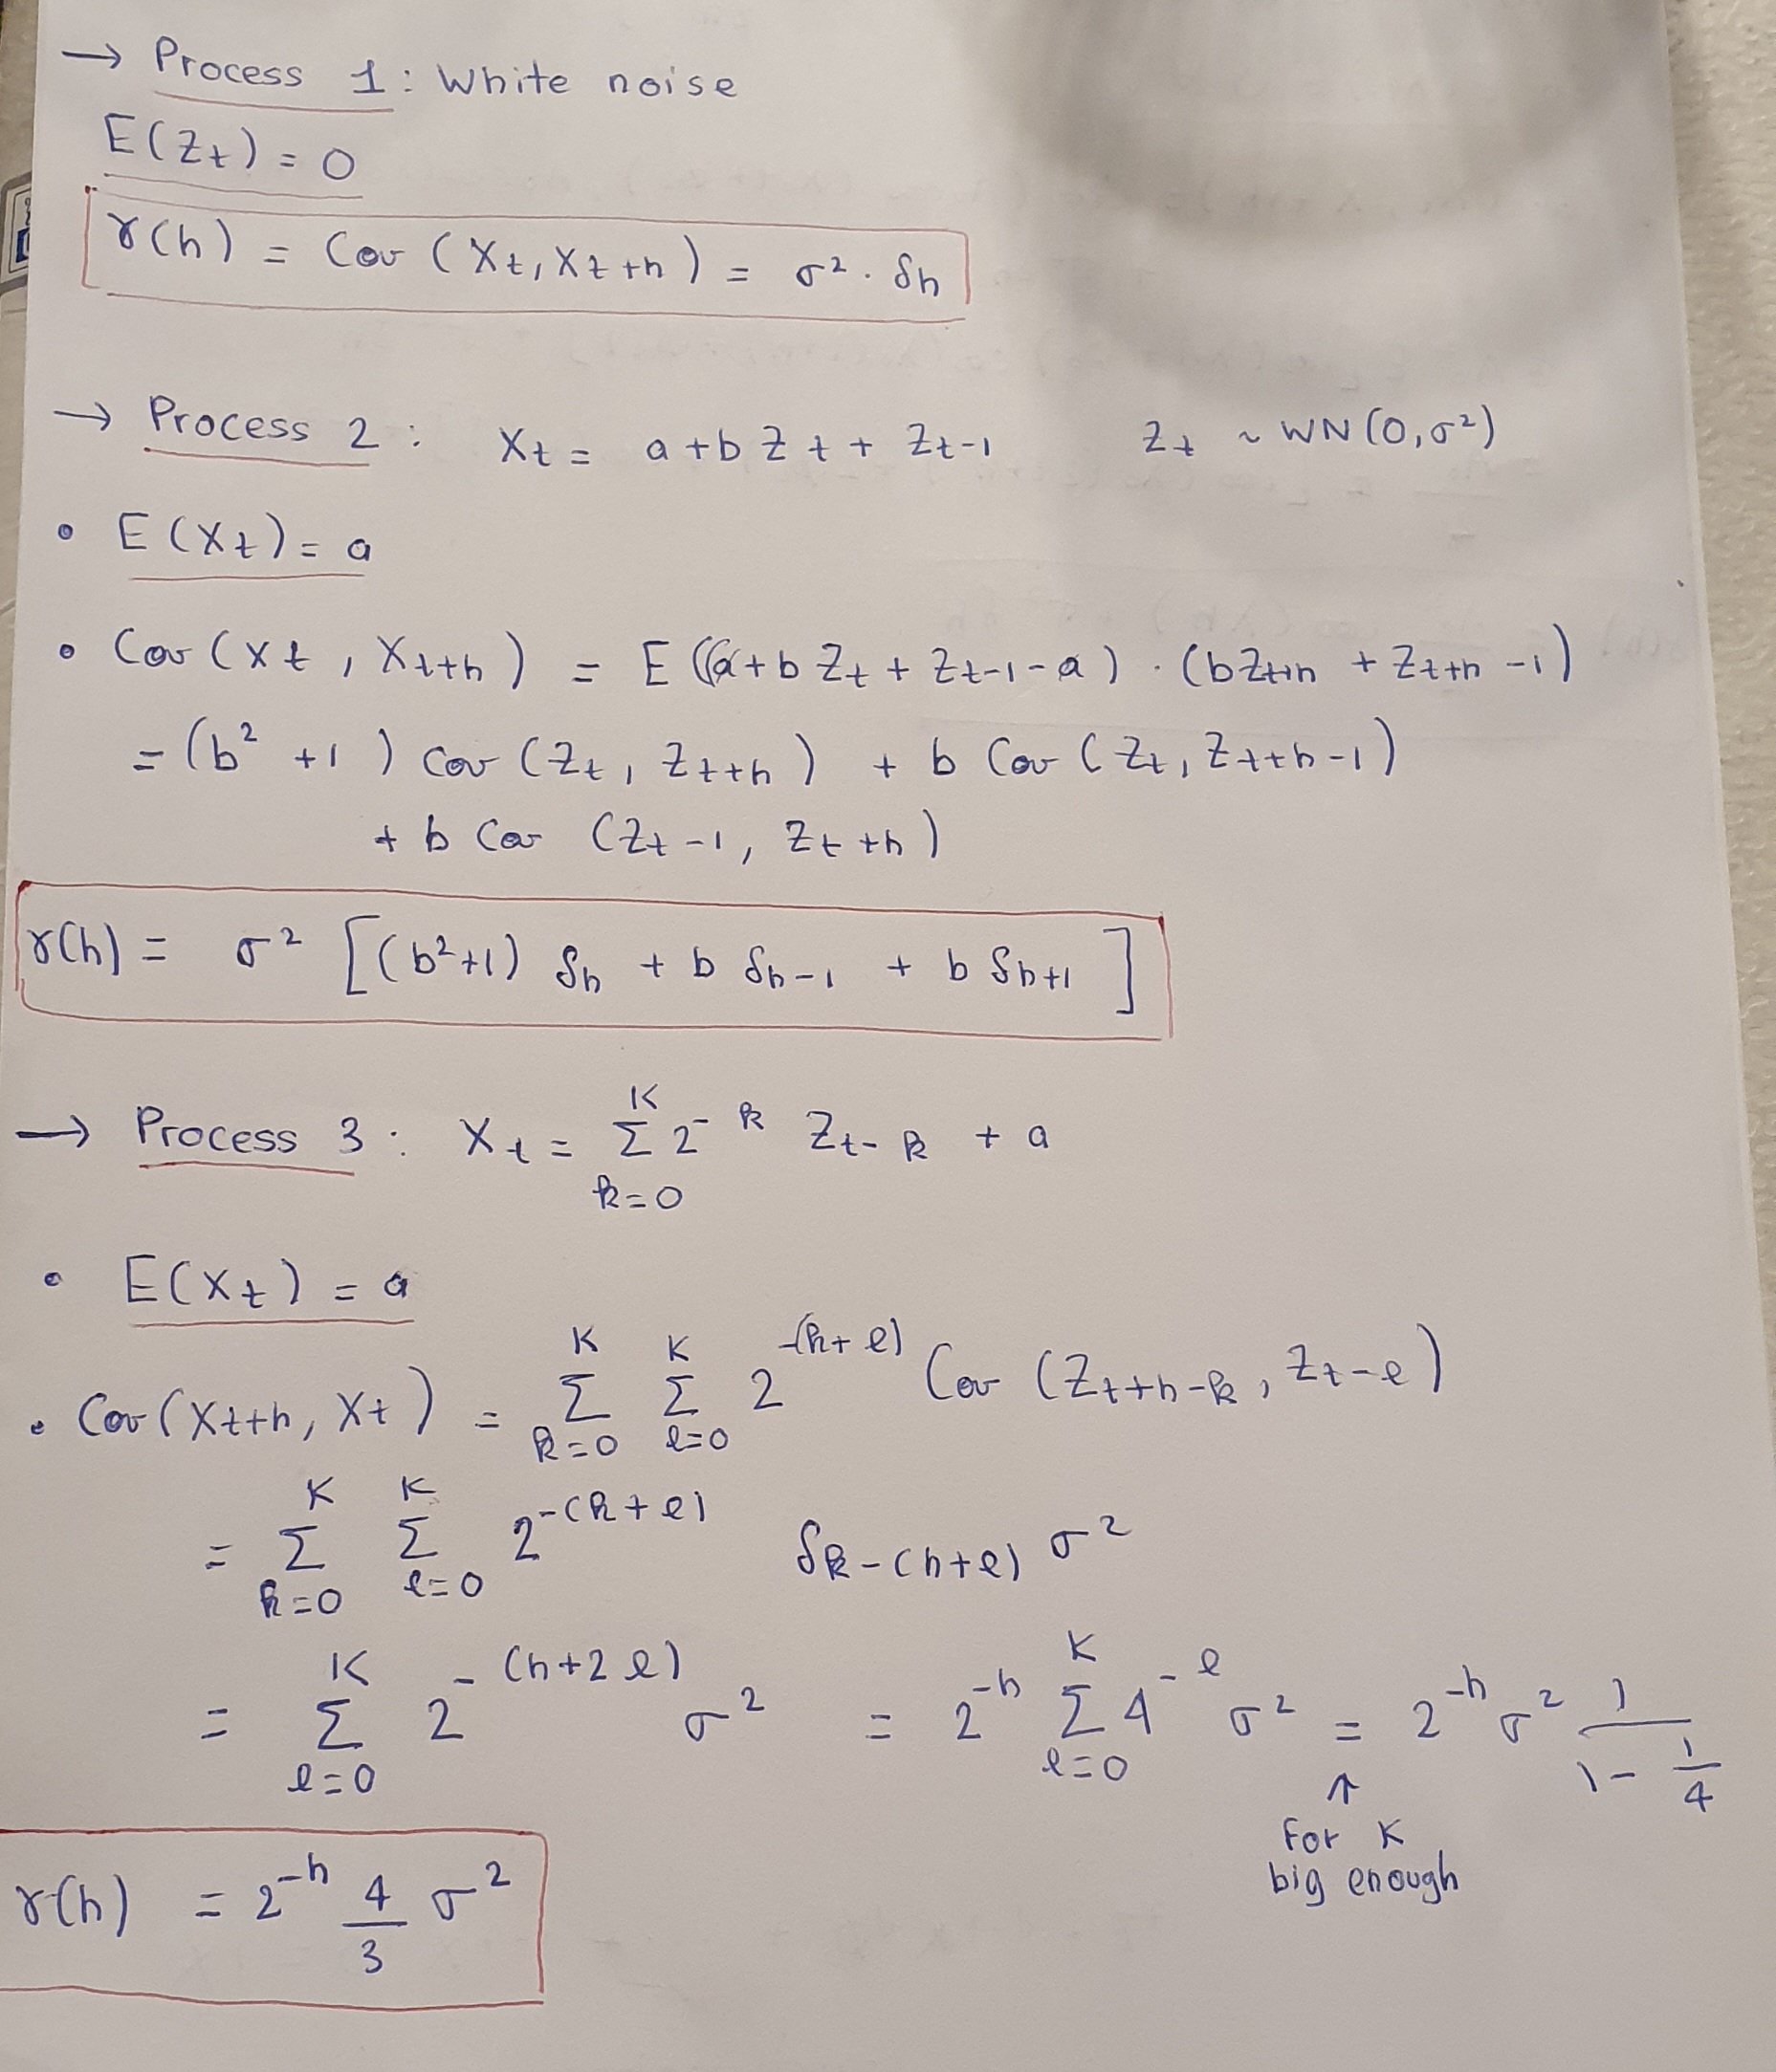 → Process 1: White noise
E(Zt) = 0
γ(h) = Cov (Xt, Xt+h) = σ². δh
→ Process 2: Xt = a + b Zt + Zt-1   Zt ~ WN(0, σ²)
• E(Xt) = a
• Cov (Xt, Xt+h) = E ((a + b Zt + Zt-1 - a) . (b Zt+h + Zt+h-1)
= (b² + 1) Cov (Zt, Zt+h) + b Cov (Zt, Zt+h-1)
+ b Cov (Zt-1, Zt+h)
γ(h) = σ² [(b²+1) δh + b δh-1 + b δh+1]
→ Process 3: Xt = Σ_{k=0}^{K} 2^{-k} Zt-k + a
• E(Xt) = a
• Cov (Xt+h, Xt) = Σ_{k=0}^{K} Σ_{l=0}^{K} 2^{-(k+l)} Cov (Zt+h-k, Zt-l)
= Σ_{k=0}^{K} Σ_{l=0}^{K} 2^{-(k+l)} δk-(h+l) σ²
= Σ_{l=0}^{K} 2^{-(h+2l)} σ² = 2^{-h} Σ_{l=0}^{K} 4^{-l} σ² = 2^{-h} σ² 1/(1 - 1/4)
↑
For K
big enough
γ(h) = 2^{-h} 4/3 σ²